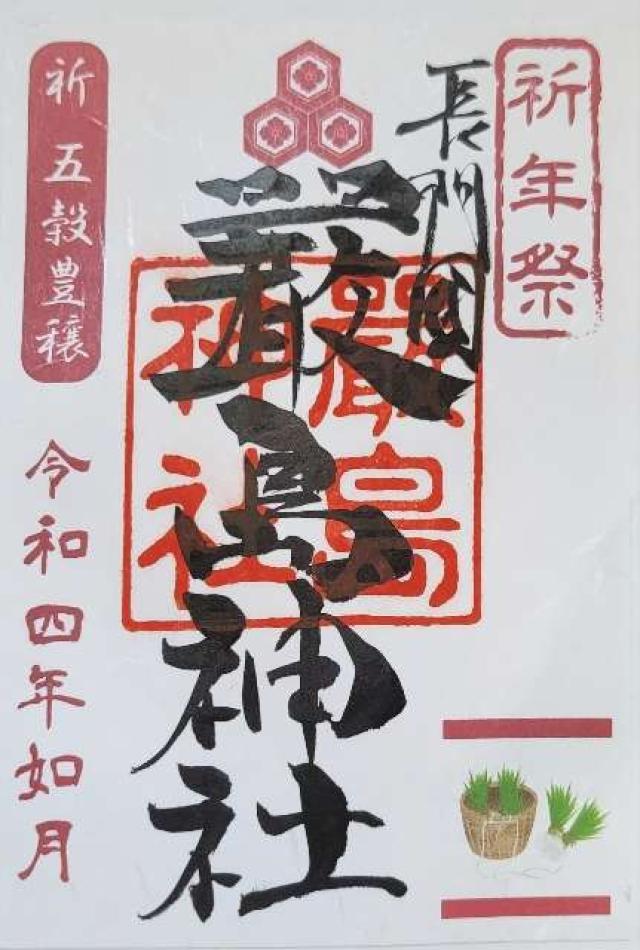 祈年祭
長門國
嚴島神社
嚴島
神社
祈 五穀豊穣
令和四年如月